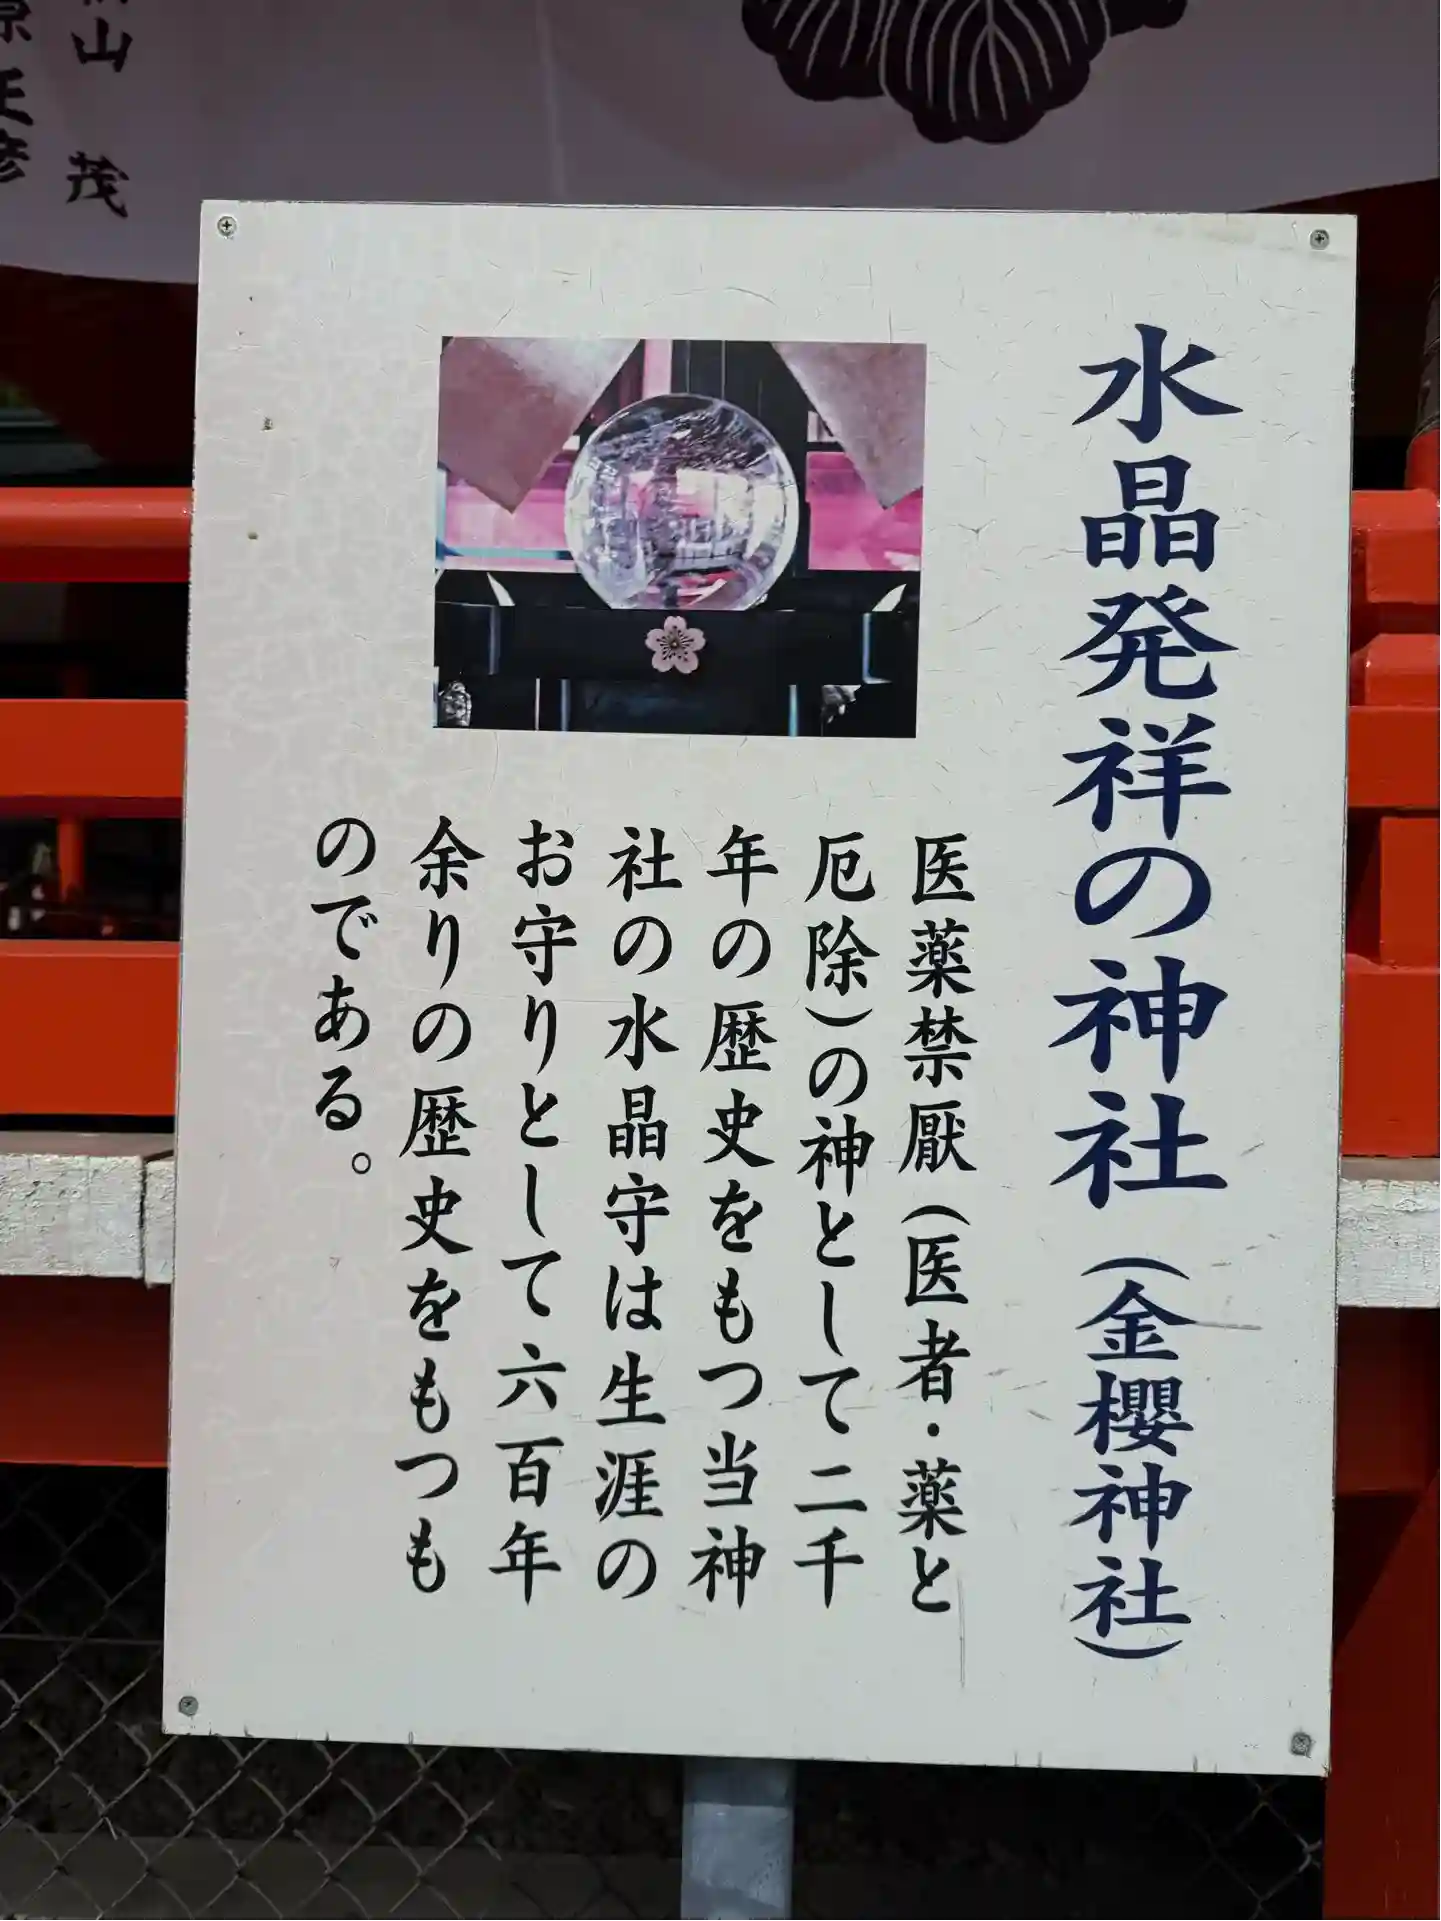 水晶発祥の神社（金櫻神社）
医薬禁厭（医者・薬と
厄除）の神として二千
年の歴史をもつ当神
社の水晶守は生涯の
お守りとして六百年
余りの歴史をもつも
のである。
山 茂